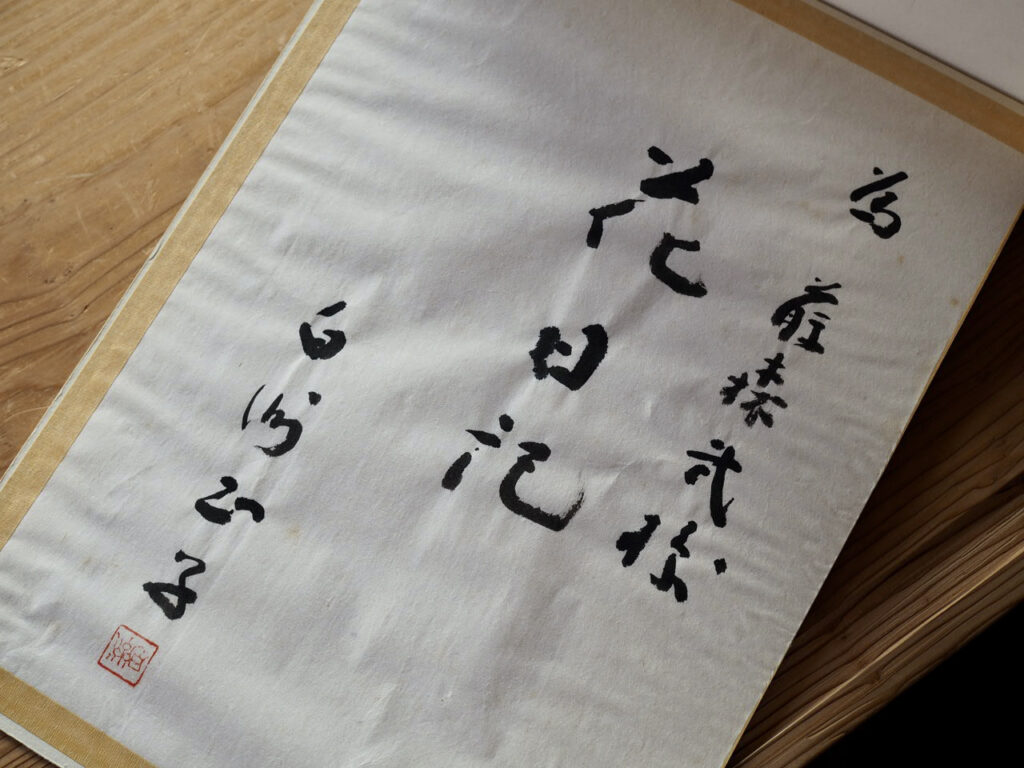 為 藤森武様
花日記
白洲正子